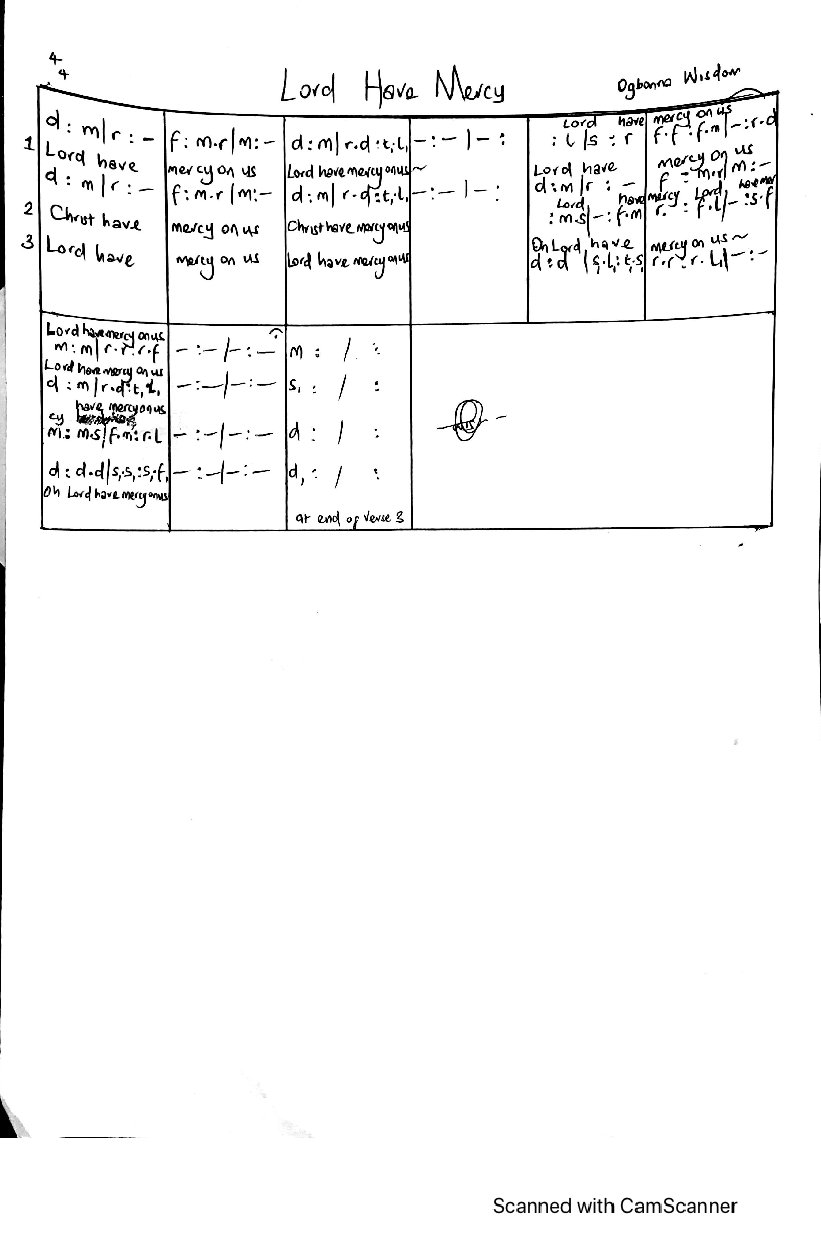 4
4
Lord Have Mercy
Ogbonna Wisdom
1
d : m | r : -
Lord have
d : m | r : -
2 Christ have
3 Lord have
f : m.r | m : -
mercy on us
f : m.r | m : -
mercy on us
mercy on us
d : m | r.d : t,.l,
Lord have mercy on us ~
d : m | r.d : t,.l,
Christ have mercy on us
Lord have mercy on us
- : - | - :
- : - | - :
Lord have
: l | s : r
Lord have
d : m | r : -
Lord have
: m.s | - : f.m
Oh Lord, have
d : d | s,.l, : t,.s,
mercy on us
f.f : f.m | - : r.d
mercy on us
f : m.r | m : -
mercy. Lord, have mer
r. : f.l | - : s.f
mercy on us ~
r.r : r.l, | - : -
Lord have mercy on us
m : m | r.r : r.f
Lord have mercy on us
d : m | r.d : t,.l,
have mercy on us
cy
m : m.s | f.m : r.l
d : d.d | s,.s, : s,.f,
Oh Lord have mercy on us
- : - | - : -
- : - | - : -
- : - | - : -
- : - | - : -
m : / :
s, : / :
d : / :
d, : / :
at end of verse 3
Scanned with CamScanner